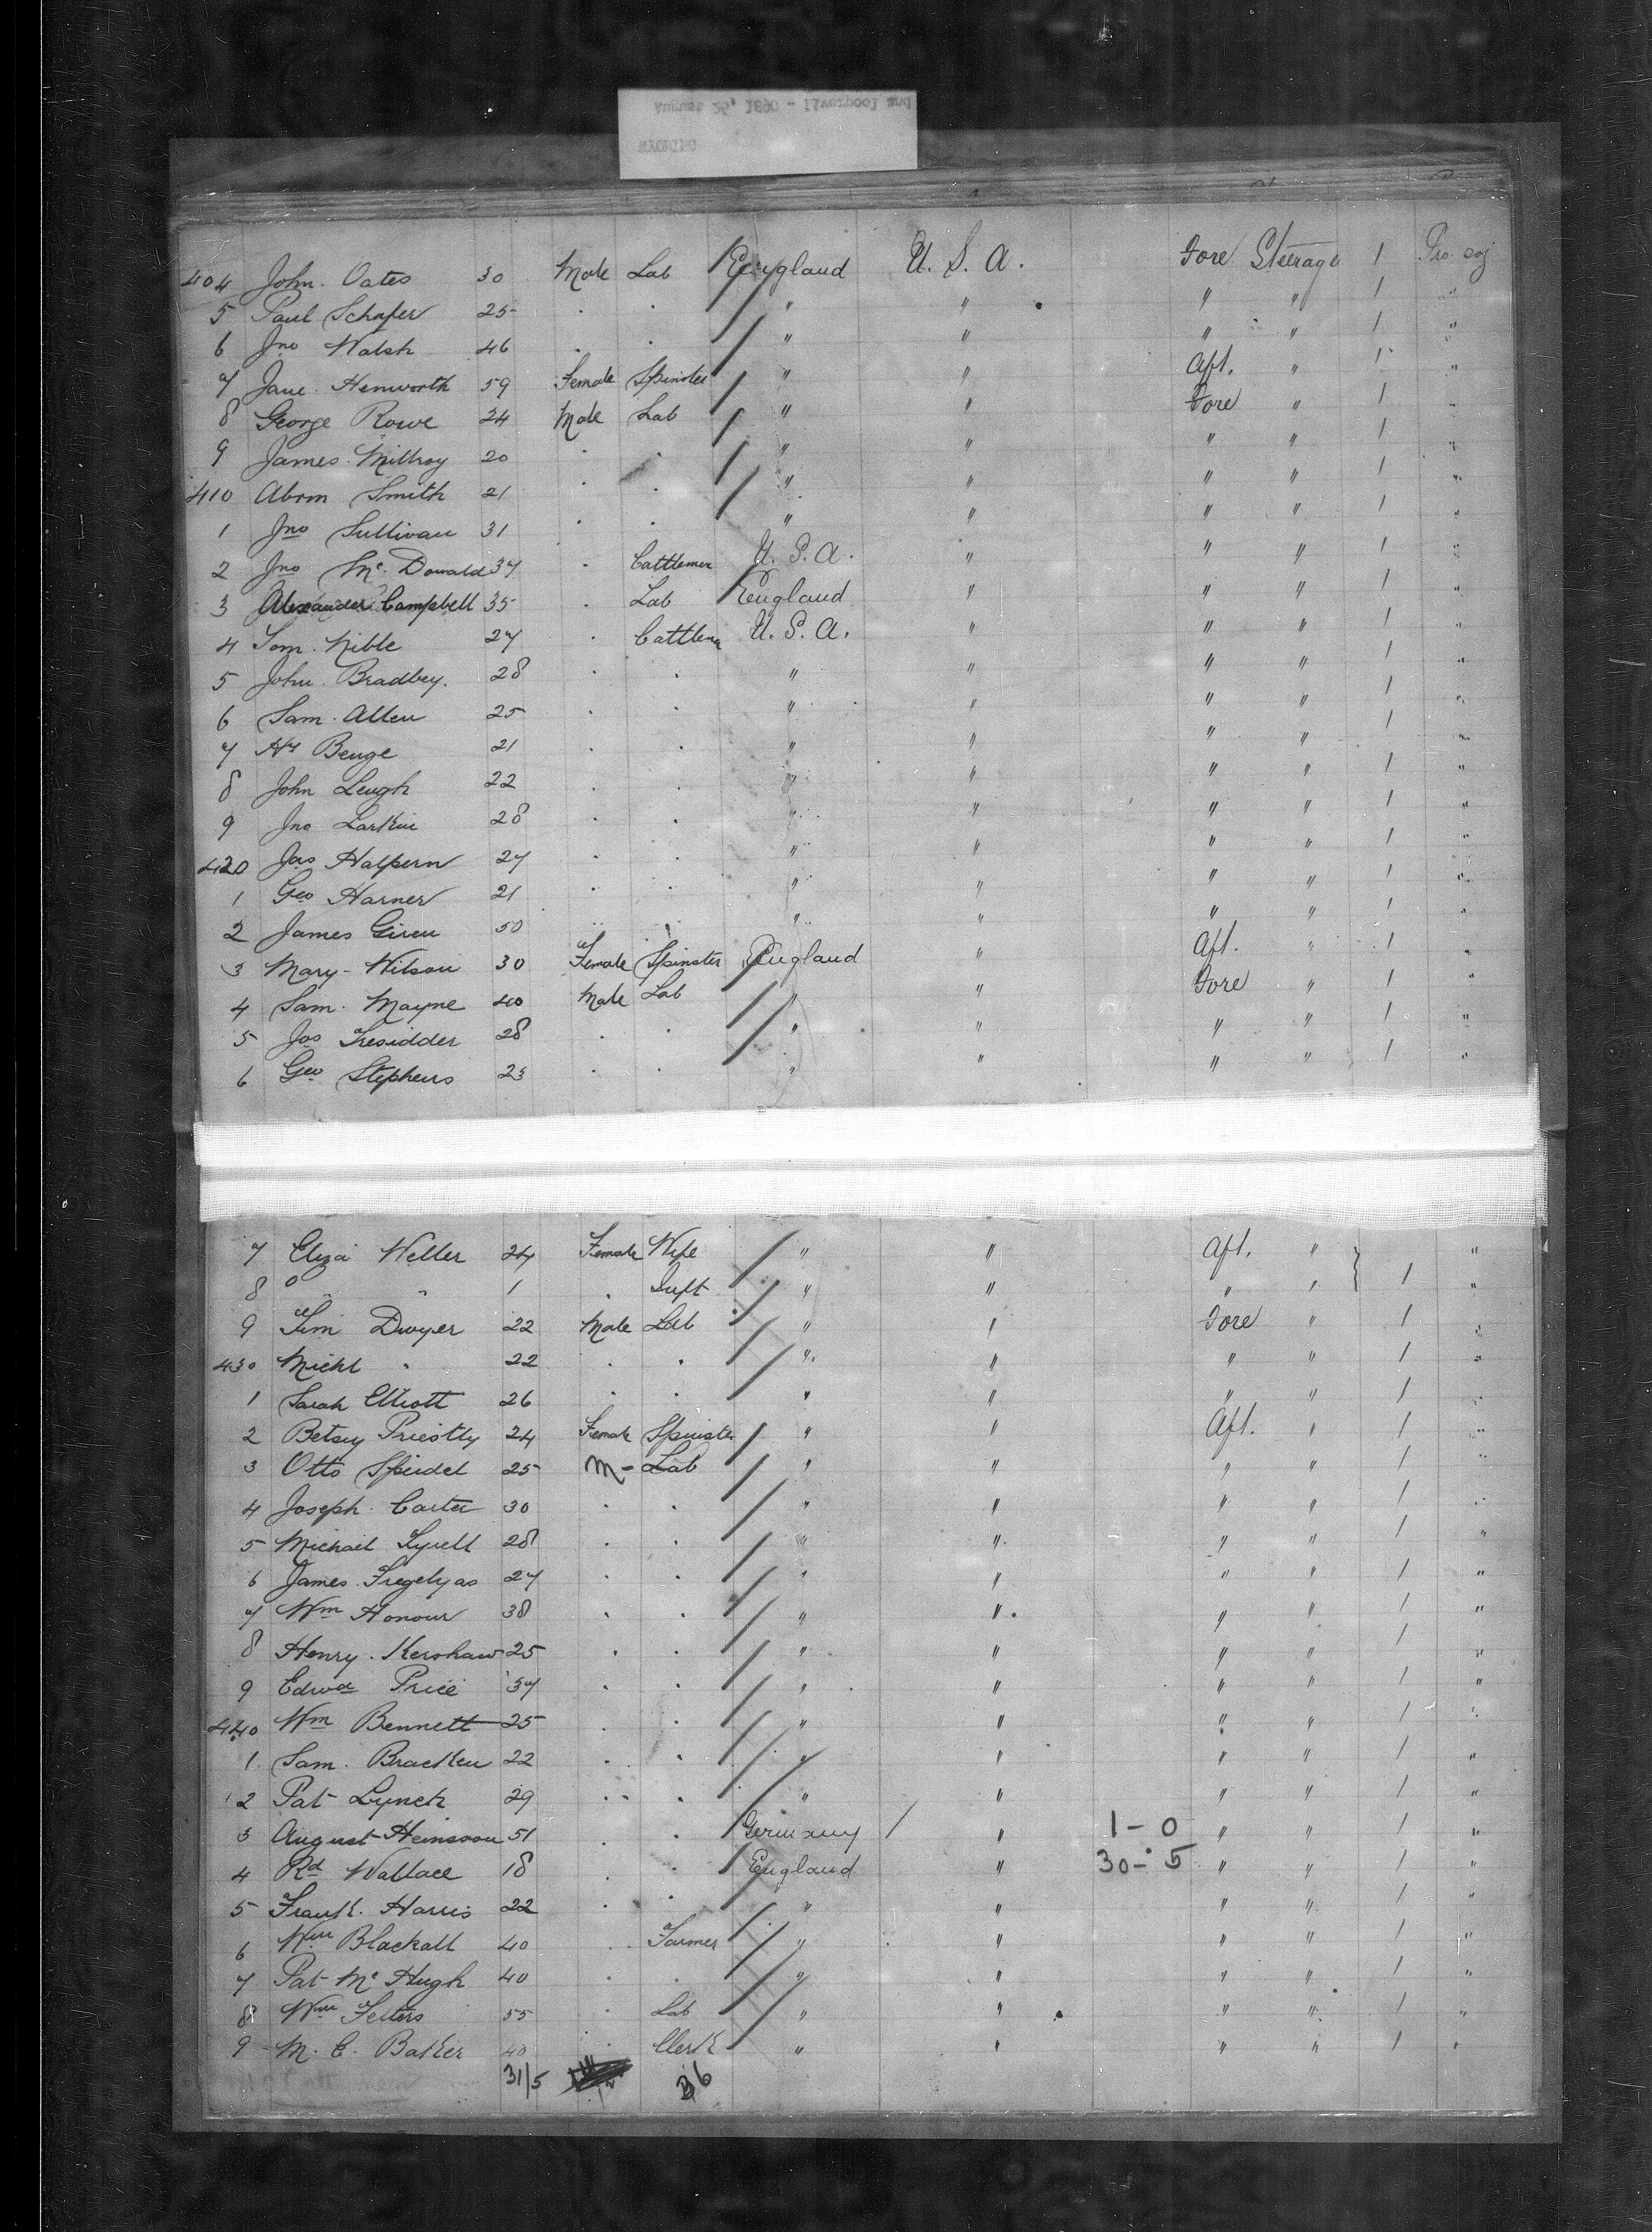 August 26, 1890 - Liverpool and
WYOMING
404 John Oates 30 Male Lab England U. S. A. Fore Steerage 1
5 Paul Schafer 25 . . " " " " 1 "
6 Jno Walsh 46 . . " " " " 1 "
7 Jane Henworth 59 Female Spinster " " Aft. " 1 "
8 George Rowe 24 Male Lab " " Fore " 1 "
9 James Millroy 20 . . " " " " 1 "
410 Abrm Smith 21 . . " " " " 1 "
1 Jno Sullivan 31 . . " " " " 1 "
2 Jno Mc Donald 37 . Cattlemen U. S. A. " " " 1 "
3 Alexander Campbell 35 . Lab England " " " 1 "
4 Tom Nible 27 . Cattlemen U. S. A. " " " 1 "
5 John Bradbey. 28 . . " " " " 1 "
6 Sam Allen 25 . . " " " " 1 "
7 Hy Benge 21 . . " " " " 1 "
8 John Leugh 22 . . " " " " 1 "
9 Jno Larkin 28 . . " " " " 1 "
420 Jas Halpern 27 . . " " " " 1 "
1 Geo Harner 21 . . " " " " 1 "
2 James Giren 50 . . " " " " 1 "
3 Mary Wilson 30 Female Spinster England " Aft. " 1 "
4 Sam Mayne 40 Male Lab " " Fore " 1 "
5 Jas Tresidder 28 . . " " " " 1 "
6 Geo Stephens 23 . . " " " " 1 "
7 Eliza Weller 24 Female Wife " " Aft. " "
8 " " 1 . Inft " " " " } 1 "
9 Tim Dwyer 22 Male Lab " " Fore " 1 "
430 Michl " 22 . . " " " " 1 "
1 Sarah Elliott 26 . . " " " " 1 "
2 Betsy Priestly 24 Female Spinster " " Aft. " 1 "
3 Otto Speidel 25 M - Lab " " " " 1 "
4 Joseph Carter 30 . . " " " " 1 "
5 Michael Tyrell 28 . . " " " " 1 "
6 James Tregelyas 27 . . " " " " 1 "
7 Wm Honour 38 . . " " " " 1 "
8 Henry Kershaw 25 . . " " " " 1 "
9 Edwd Price 37 . . " " " " 1 "
440 Wm Bennett 25 . . " " " " 1 "
1 Sam Bracken 22 . . " " " " 1 "
2 Pat Lynch 29 . . " " " " 1 "
3 August Heinsson 51 . . Germany / " 1 - 0 " " 1 "
4 Rd Wallace 18 . . England " 30 - 5 " " 1 "
5 Frank Harris 22 . . " " " " 1 "
6 Wm Blackall 40 . Farmer " " " " 1 "
7 Pat Mc Hugh 40 . . " " " " 1 "
8 Wm Fetters 55 . Lab " " " " 1 "
9 M. C. Baker 40 . Clerk " " " " 1 "
31/5 36